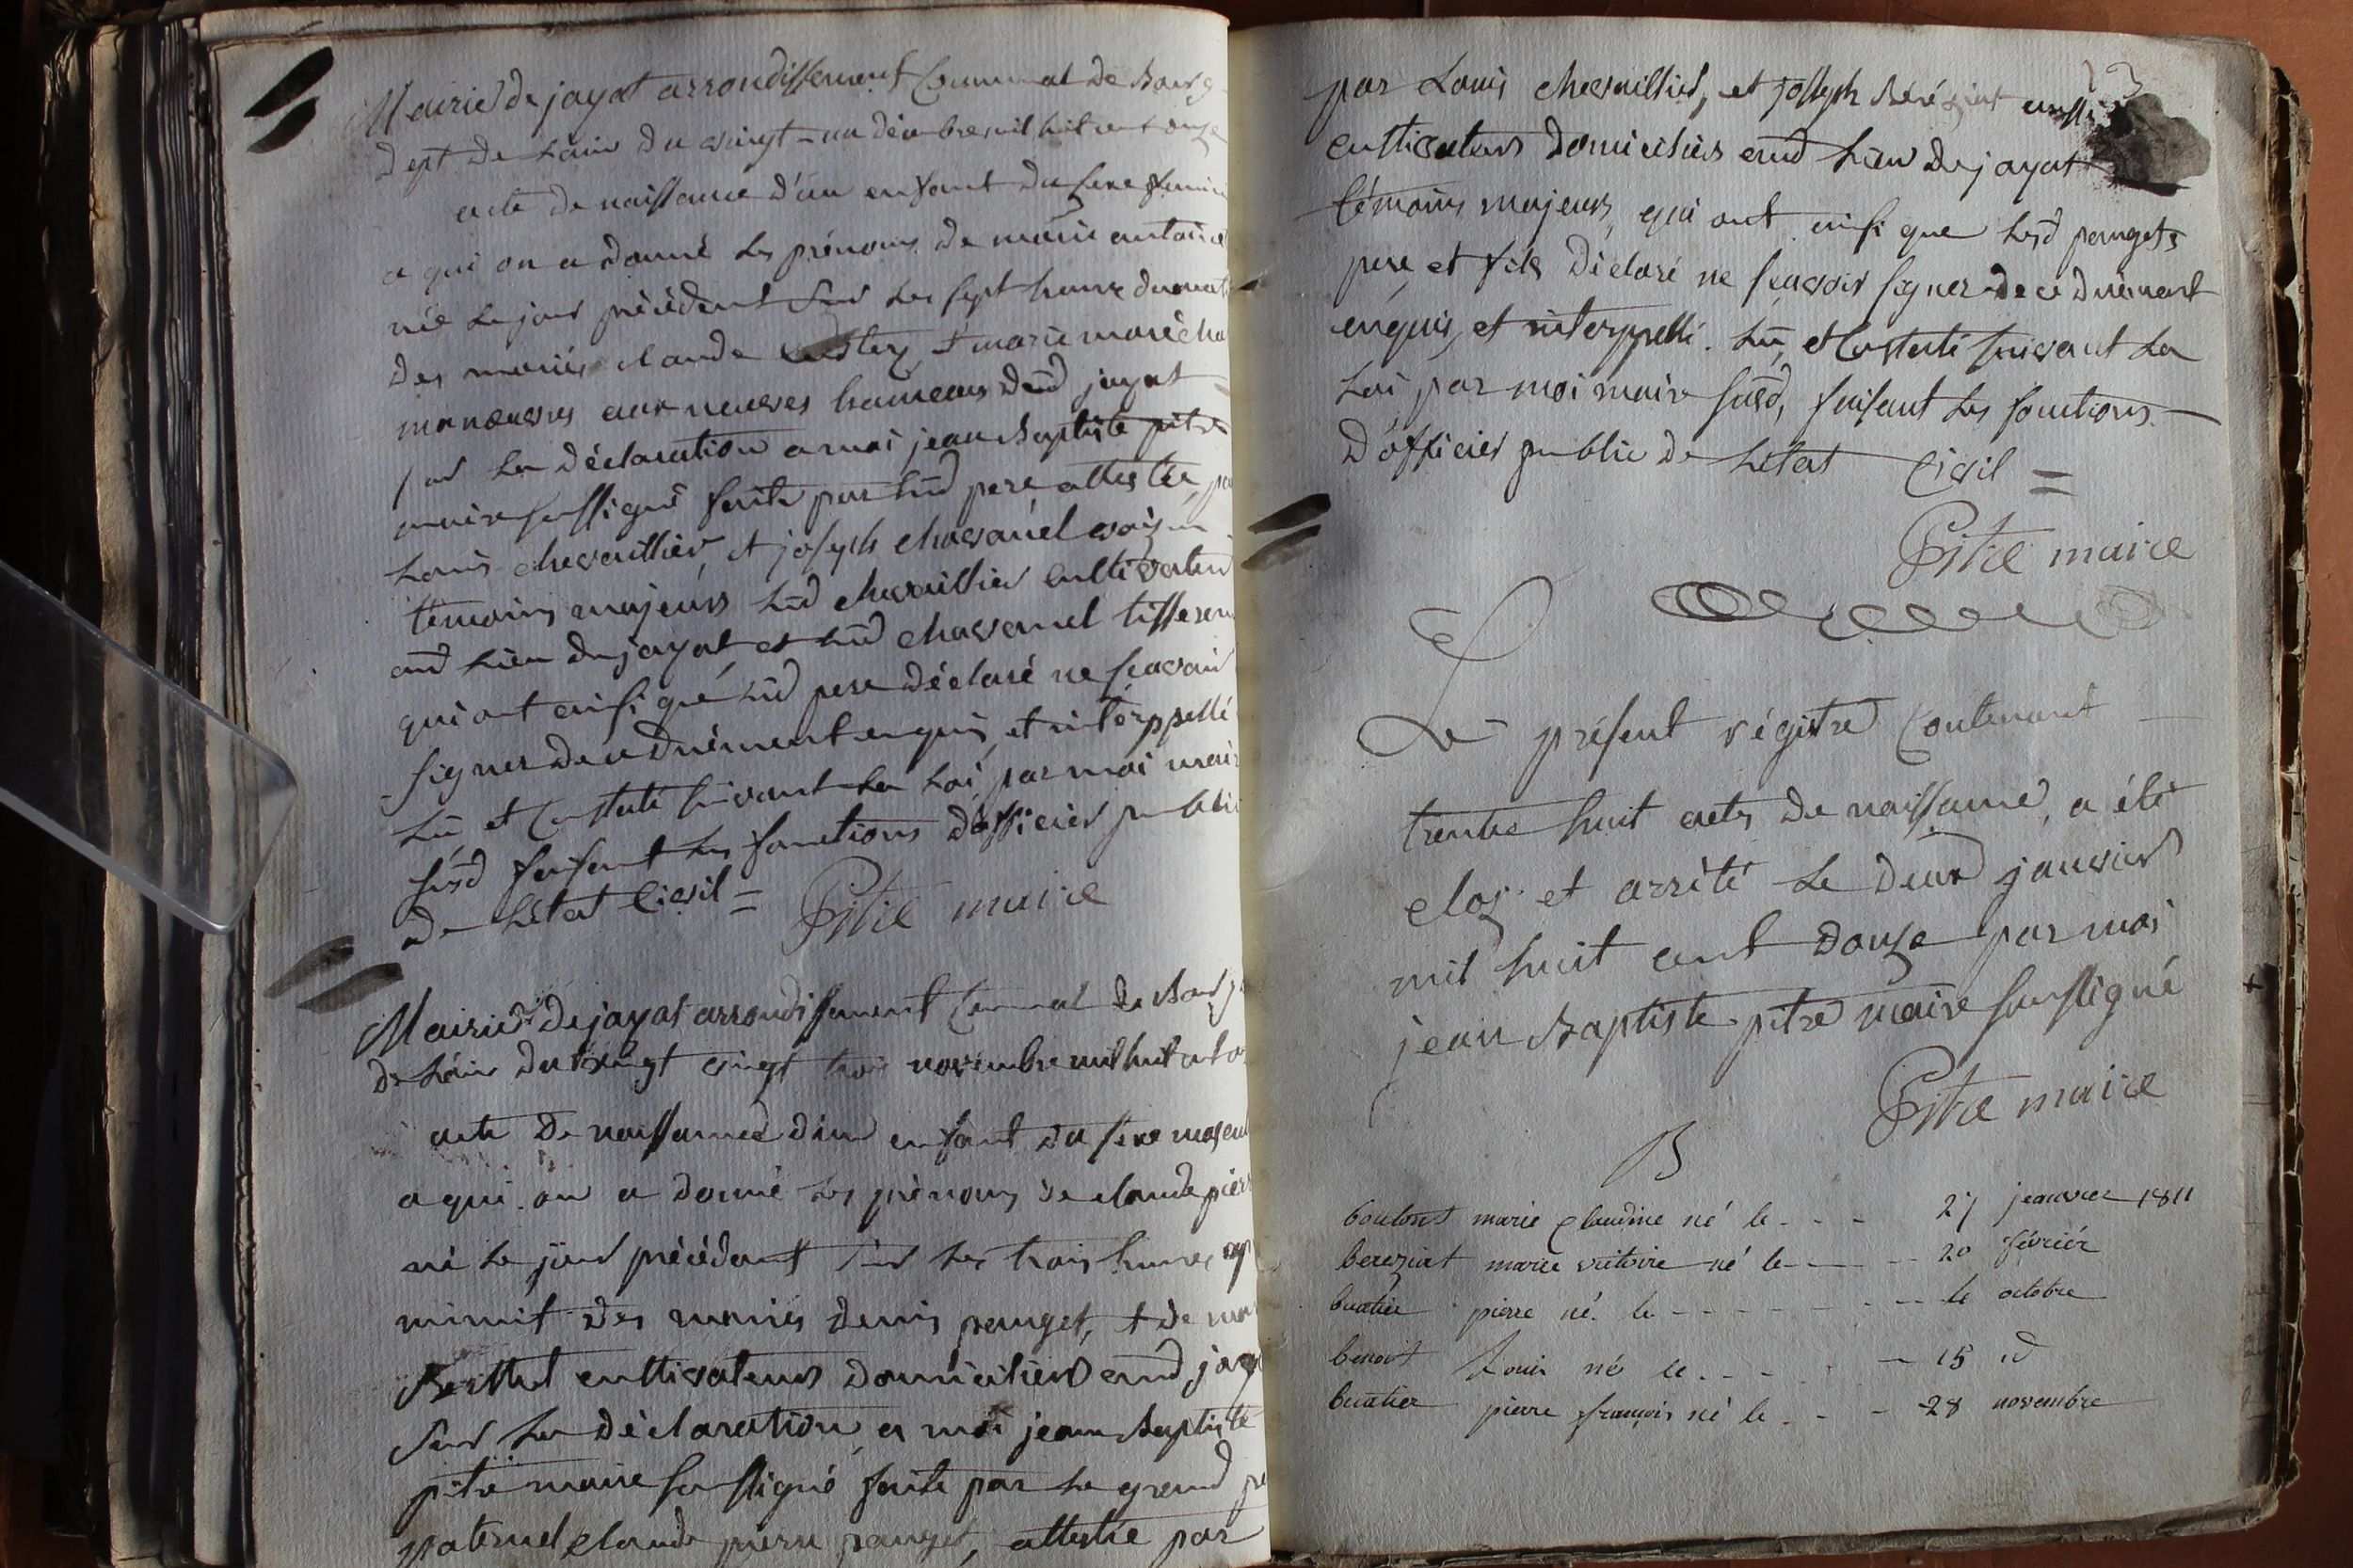 Mairie de jayat arrondissement Communal de Bourg
dept de Lain du vingt-un décembre mil huit cent onze
acte de naissance d'un enfant du sexe femini
a qui on a donné les prénoms de marie antoine
née le jour précédent sur les sept heures du mati
des mariés claude & marie marécha
manoeuvres aux hameaux dud jayat
sur La déclaration a moi jean Baptiste pitre
maire soussigné faite par Led pere attestée pa
Louis chevaillier, et joseph chavanel voisin
témoins majeurs Led chevaillier Cultivateur
aud Lieu de jayat et Led chavanel tisseran
qui ont ainsi que Led pere déclaré ne scavoir
signer de ce duëment enquis, et interppellé
Lû et Constaté suivant La Loi, par moi mair
susd faisant les fonctions d'officier public
de Létat Civil =
Pitre maire
Mairie de jayat arrondissement Communal de Bourg
de Lain du vingt vingt trois novembre mil huit cent on
acte de naissance d'un enfant du sexe mascul
a qui on a donné les prénoms de claude pier
né Le jour précédent sur les trois heures ap
minuit des mariés denis panget, & de mar
Berthet cultivateurs domiciliés aud jaya
Sur La déclaration a moi jean Baptiste
pitre maire soussigné faite par Le grand pe
paternel claude pierre panget, attestée par
par Louis chevaillier, et joseph Béréziat aussi
cultivateurs domiciliés aud Lieu de jayat
témoins majeurs, qui ont ainsi que Lesd pangets
pere et fils déclaré ne scavoir signer de ce duëment
enquis, et interppellé. Lû, et Constaté suivant La
Loi par moi maire susd, faisant les fonctions
d'officier public de Létat Civil =
Pitre maire
Le présent régistre Contenant
trente huit actes de naissance, a été
clos et arrêté Le deux janvier
mil huit cent douze par moi
jean Baptiste pitre maire soussigné
Pitre maire
B
marie claudine né le - - - 27 janvier 1811
bereziat marie victoire né le - - - 20 février
buatier pierre né le - - - - - - le octobre
benoit Louis né le - - - - 15 id
buatier pierre françois né le - - - 28 novembre